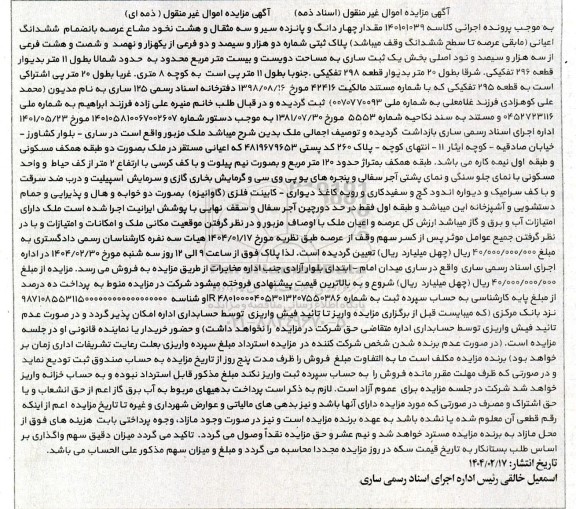 آگهی مزایده اموال غیر منقول (اسناد ذمه)        آگهی مزایده اموال غیر منقول ( ذمه ای )
به موجب پرونده اجرائی کلاسه ۱۴۰۱۰۱۰۳۹ مقدار چهار دانگ و پانزده سیر و سه مثقال و هشت نخود مشاع عرصه بانضمام ششدانگ
اعیانی (مابقی عرصه تا سطح ششدانگ وقف میباشد) پلاک ثبتی شماره دو هزار و سیصد و دو فرعی از یکهزار و نهصد و شصت و هشت فرعی
از سه هزار و سیصد و نود اصلی بخش یک ثبت ساری به مساحت دویست و بیست متر مربع محدود به حدود شمالا بطول ۱۱ متر بدیوار
قطعه ۲۹۶ تفکیکی .شرقا بطول ۲۰ متر بدیوار قطعه ۲۹۸ تفکیکی .جنوبا بطول ۱۱ متر پی است به کوچه ۸ متری. غربا بطول ۲۰ متر پی اشتراکی
است به قطعه ۲۹۵ تفکیکی که با شماره مستند مالکیت ۴۲۴۱۶ مورخ ۱۳۹۸/۰۸/۱۶ دفترخانه اسناد رسمی ۱۲۵ ساری به نام مدیون (محمد
علی کوهزادی فرزند غلامعلی به شماره ملی ۰۰۷۰۷۷۰۰۹۳) ثبت گردیده و در قبال طلب خانم منیره علی زاده فرزند ابراهیم به شماره ملی
۰۴۵۲۷۲۳۱۱۶ و مستند به سند نکاحیه شماره ۵۵۵۳ مورخ ۱۳۸۱/۰۷/۳۰ به موجب دستور شماره ۱۴۰۱۰۵۸۱۰۰۶۷۰۰۲۶۰۷ مورخ ۱۴۰۱/۰۵/۲۳
اداره اجرای اسناد رسمی ساری بازداشت گردیده و توصیف اجمالی ملک بدین شرح میباشد ملک مزبور واقع است در ساری - بلوار کشاورز -
خیابان صادقیه - کوچه ایثار ۱۱ - انتهای کوچه - پلاک ۲۶۰ کد پستی ۴۸۱۹۶۷۹۶۵۳ که اعیانی مستقر در ملک بصورت دو طبقه همکف مسکونی
و طبقه اول نیمه کاره می باشد. طبقه همکف بمتراژ حدود ۱۲۰ متر مربع و بصورت نیم پیلوت و با کف کرسی با ارتفاع ۲ متر از کف حیاط و واحد
مسکونی با نمای جلو سنگی و نمای پشتی آجر سفالی و پنجره های یو پی وی سی و گرمایش بخاری گازی و سرمایش اسپیلیت و درب ضد سرقت
و با کف سرامیک و دیواره اندود گچ و سفیدکاری و رویه کاغذ دیواری - کابینت فلزی (گاوانیزه) بصورت دو خوابه و هال و پذیرایی و حمام
دستشویی و آشپزخانه این میباشد و طبقه اول فقط در حد دورچین آجر سفال و سقف نهایی با پوشش ایرانیت اجرا شده است ملک دارای
امتیازات آب و برق و گاز میباشد ارزش کل عرصه و اعیان ملک با اوصاف مزبور و در نظر گرفتن موقعیت مکانی ملک و امکانات و امتیازات و با در
نظر گرفتن جمیع عوامل موثر پس از کسر سهم وقف از عرصه طبق نظریه مورخ ۱۴۰۴/۰۱/۱۷ هیات سه نفره کارشناسان رسمی دادگستری به
مبلغ ۴۰/۰۰۰/۰۰۰/۰۰۰ ریال (چهل میلیارد ریال) تعیین گردیده است. لذا پلاک فوق از ساعت ۹ الی ۱۲ روز سه شنبه مورخ ۱۴۰۴/۰۲/۳۰ در اداره
اجرای اسناد رسمی ساری واقع در ساری میدان امام - ابتدای بلوار آزادی جنب اداره مخابرات از طریق مزایده به فروش می رسد. مزایده از مبلغ
۴۰/۰۰۰/۰۰۰/۰۰۰ ریال (چهل میلیارد ریال) شروع و به بالاترین قیمت پیشنهادی فروخته میشود شرکت در مزایده منوط به پرداخت ده درصد
از مبلغ پایه کارشناسی به حساب سپرده ثبت به شماره
نزد بانک مرکزی (که میبایست قبل از برگزاری مزایده واریز تا تائید فیش واریزی توسط حسابداری اداره امکان پذیر گردد و در صورت عدم
تائید فیش واریزی توسط حسابداری اداره متقاضی حق شرکت در مزایده را نخواهد داشت) و حضور خریدار یا نماینده قانونی او در جلسه
مزایده است. (در صورت عدم برنده شدن شخص شرکت کننده در مزایده استرداد مبلغ سپرده واریزی بعلت رعایت تشریفات اداری زمان بر
خواهد بود) برنده مزایده مکلف است ما به التفاوت مبلغ فروش را ظرف مدت پنج روز از تاریخ مزایده به حساب صندوق ثبت تودیع نماید
و در صورتی که ظرف مهلت مقرر مانده فروش را به حساب سپرده ثبت واریز نکند مبلغ مذکور قابل استرداد نبوده و به حساب خزانه واریز
خواهد شد شرکت در جلسه مزایده برای عموم آزاد است. لازم به ذکر است پرداخت بدهیهای مربوط به آب برق گاز اعم از حق انشعاب و یا
حق اشتراک و مصرف در صورتی که مورد مزایده دارای آنها باشد و نیز بدهی های مالیاتی و عوارض شهرداری و غیره تا تاریخ مزایده اعم از اینکه
رقم قطعی آن معلوم شده یا نشده باشد به عهده برنده مزایده است و نیز در صورت وجود مازاد، وجوه پرداختی بابت هزینه های فوق از
محل مازاد به برنده مزایده مسترد خواهد شد و نیم عشر و حق مزایده نقداً وصول می گردد. تاکید می گردد میزان دقیق سهم واگذاری بر
اساس طلب بستانکار به تاریخ قیمت سکه در روز مزایده مجددا محاسبه می گردد و مبلغ و میزان سهم مذکور علی الحساب می باشد.
تاریخ انتشار: ۱۴۰۴/۰۲/۱۷
اسمعیل خالقی رئیس اداره اجرای اسناد رسمی ساری